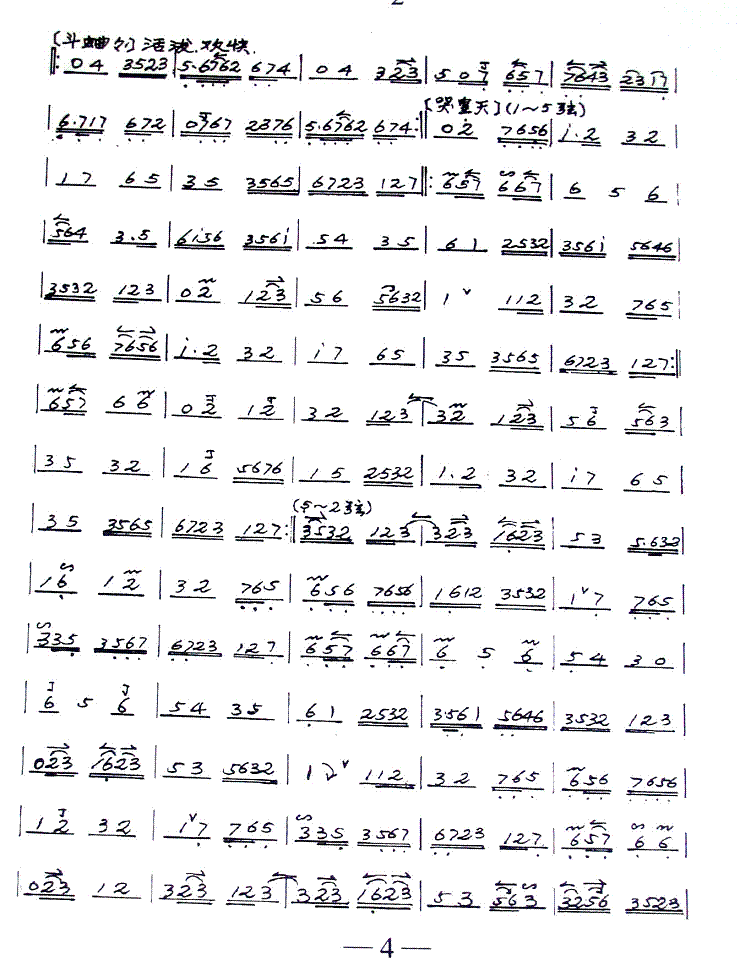 [斗曲(1)] 活泼.欢快.
‖: 0 4 3523 | 5.6762 674 | 0 4 323 | 507 657 | 7643 2317 |
[哭皇天] (1~5弦)
6.717 672 | 0767 2376 | 5.6762 674 :‖ 02 7656 | i.2 32 |
| 17 65 | 35 3565 | 6723 127 ‖: 657 667 | 6 5 6 |
| 564 3.5 | 6i56 356i | 54 35 | 61 2532 | 356i 5646 |
| 3532 123 | 02 123 | 56 5632 | 1ˇ 112 | 32 765 |
| 656 7656 | i.2 32 | i7 65 | 35 3565 | 6723 127 :‖
| 657 66 | 02 12 | 32 123 | 32 123 | 56 563 |
| 35 32 | 16 5676 | 15 2532 | 1.2 32 | i7 65 |
(5~2弦)
| 35 3565 | 6723 127 :‖ 3532 123 | 323 1623 | 53 5.632 |
| 16 12 | 32 765 | 656 7656 | 1612 3532 | 1ˇ7 765 |
| 335 3567 | 6723 127 | 657 667 | 6 5 6 | 54 30 |
| 6 5 6 | 54 35 | 61 2532 | 3.561 5646 | 3532 123 |
| 023 1623 | 53 5632 | 1ˇ 112 | 32 765 | 656 7656 |
| 12 32 | 1ˇ7 765 | 335 3567 | 6723 127 | 657 66 |
| 023 12 | 323 123 | 323 1623 | 53 563 | 3256 3523 |
— 4 —